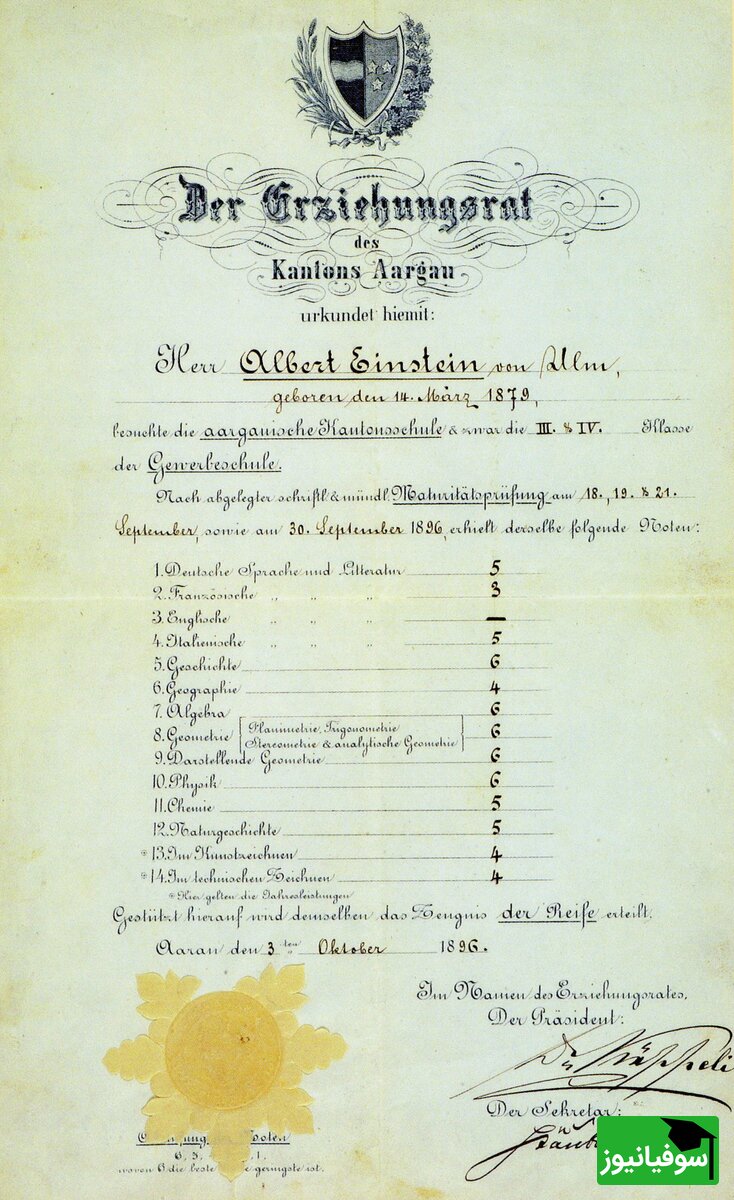 Der Erziehungsrat
des
Kantons Aargau
urkundet hiemit:
Herr Albert Einstein von Ulm,
geboren den 14. März 1879,
besuchte die aargauische Kantonsschule & zwar die III. & IV. Klasse
der Gewerbeschule.
Nach abgelegter schriftl. & mündl. Maturitätsprüfung am 18., 19. & 21.
September, sowie am 30. September 1896, erhielt derselbe folgende Noten:
1. Deutsche Sprache und Litteratur 5
2. Französische „ „ „ 3
3. Englische „ „ „ —
4. Italienische „ „ „ 5
5. Geschichte 6
6. Geographie 4
7. Algebra 6
8. Geometrie [Planimetrie, Trigonometrie 6
Stereometrie & analytische Geometrie]
9. Darstellende Geometrie 6
10. Physik 6
11. Chemie 5
12. Naturgeschichte 5
* 13. Im Kunstzeichnen 4
* 14. Im technischen Zeichnen 4
* Hier gelten die Jahresleistungen
Gestützt hierauf wird demselben das Zeugnis der Reife erteilt.
Aarau den 3ten Oktober 1896.
Im Namen des Erziehungsrates,
Der Präsident:
Dr. Käppeli
Der Sekretär:
Noten
6, 5, 1.
wovon 6 die beste geringste ist.
سوفیانیوز